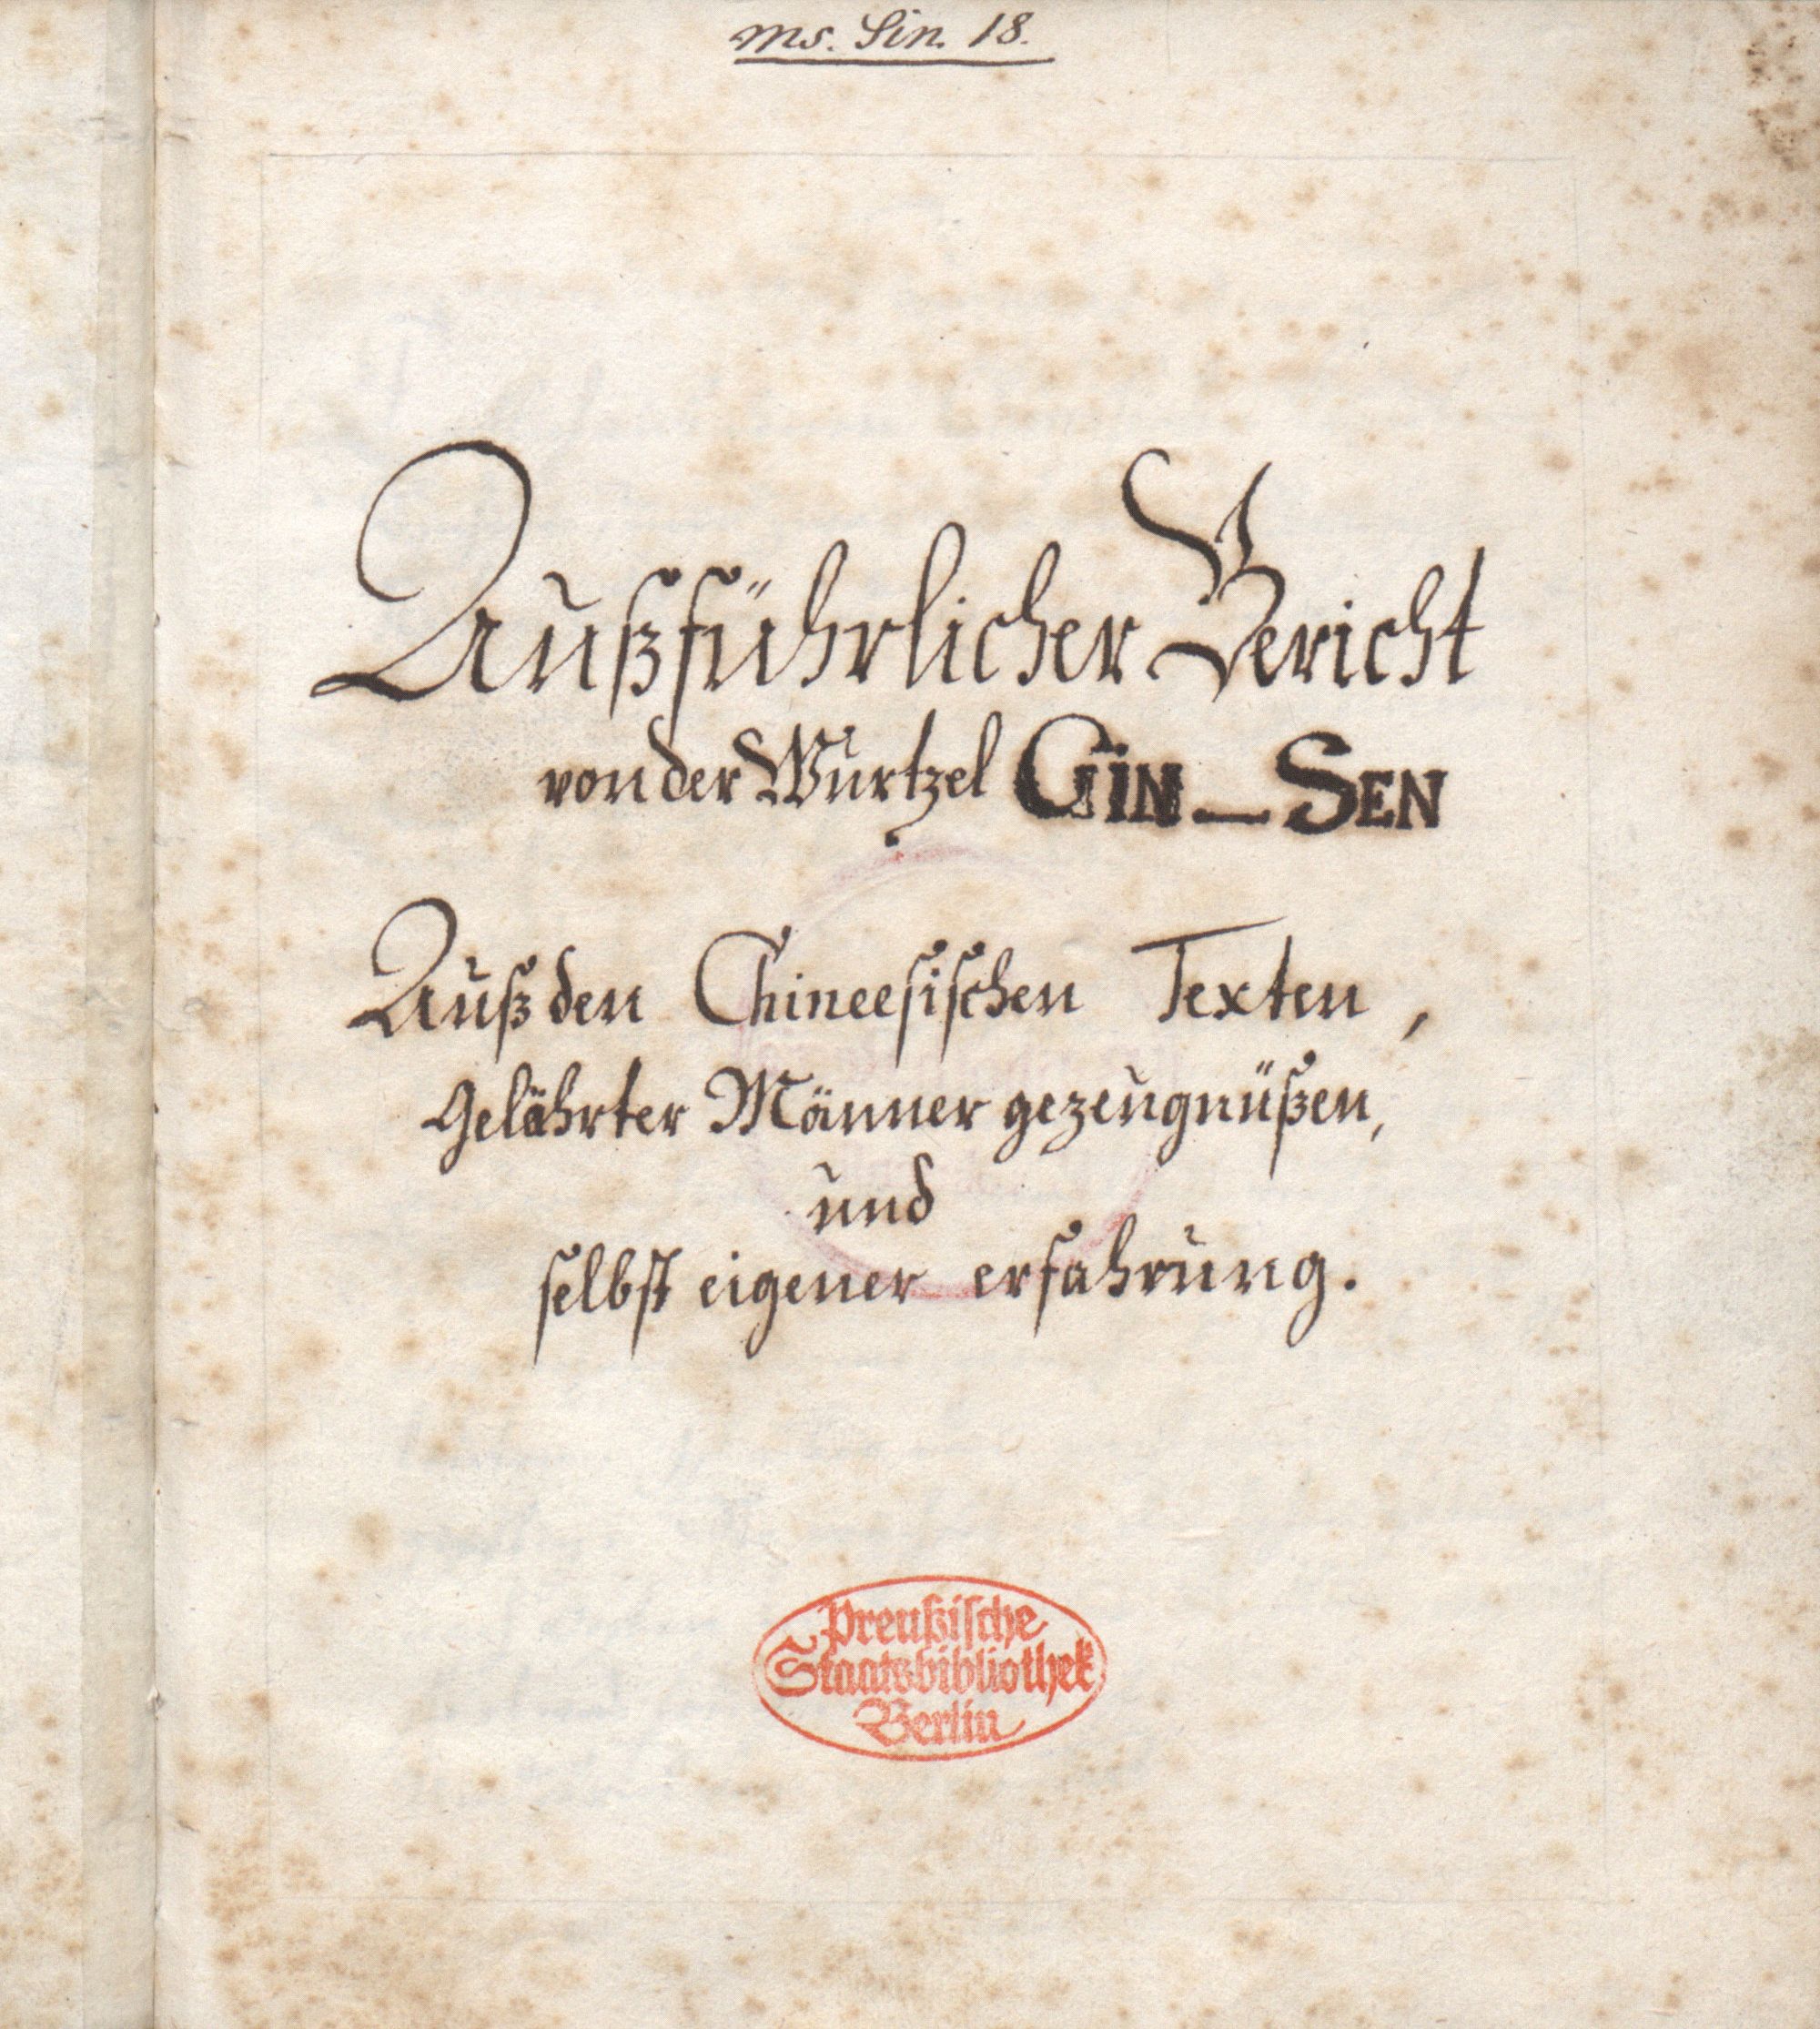 Ms. Sin. 18.
Außführlicher Bericht
von der Wurtzel GIN_SEN
Auß den Chineesischen Texten,
Gelährter Männer gezeugnüßen,
und
selbst eigener erfahrung.
Preußische
Staatsbibliothek
Berlin